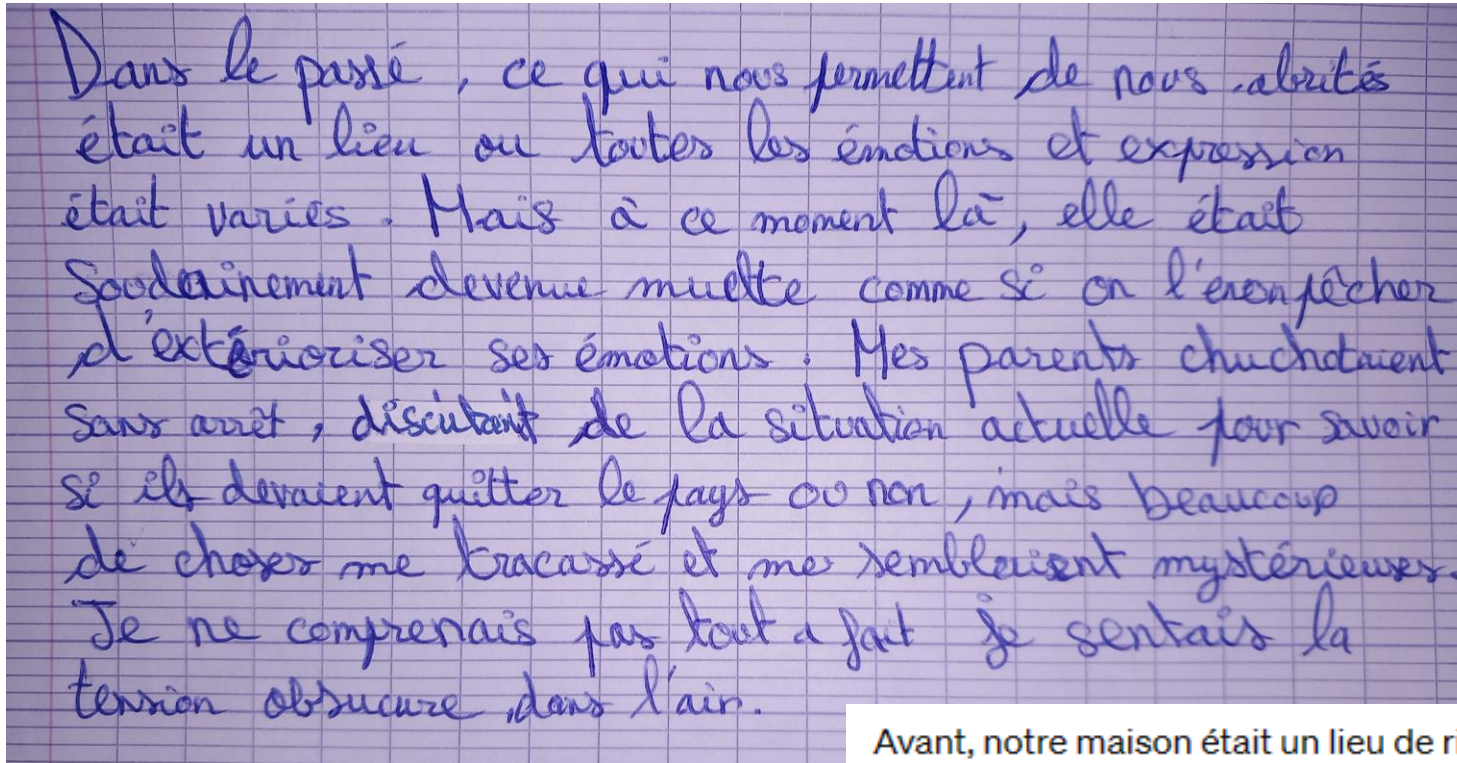 Dans le passé, ce qui nous permettent de nous abrités
était un lieu ou toutes les émotions et expression
était variés. Mais à ce moment là, elle était
Soudainement devenue muette comme si on l'empêcher
d'extérioriser ses émotions. Mes parents chuchotaient
sans arrêt, discutait de la situation actuelle pour savoir
si ils devaient quitter le pays ou non, mais beaucoup
de choses me tracassé et me semblaient mystérieuses.
Je ne comprenais pas tout a fait je sentais la
tension obsucure dans l'air.
Avant, notre maison était un lieu de ri